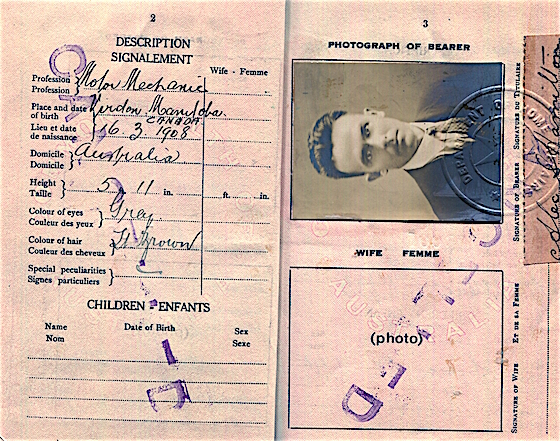 2
DESCRIPTION
SIGNALEMENT
Wife - Femme
Profession
Profession
Motor Mechanic
Place and date
of birth
Lieu et date
de naissance
Virden Manitoba
CANADA
16. 3. 1908
Domicile
Domicile
Australia
Height
Taille
5 11 in. ft. in.
Colour of eyes
Couleur des yeux
Gray
Colour of hair
Couleur des cheveux
Lt Brown
Special peculiarities
Signes particuliers
CHILDREN - ENFANTS
Name
Nom
Date of Birth
Sex
Sexe
3
PHOTOGRAPH OF BEARER
SIGNATURE OF BEARER SIGNATURE DU TITULAIRE
WIFE FEMME
AUSTRALI
(photo)
SIGNATURE OF WIFE ET DE SA FEMME